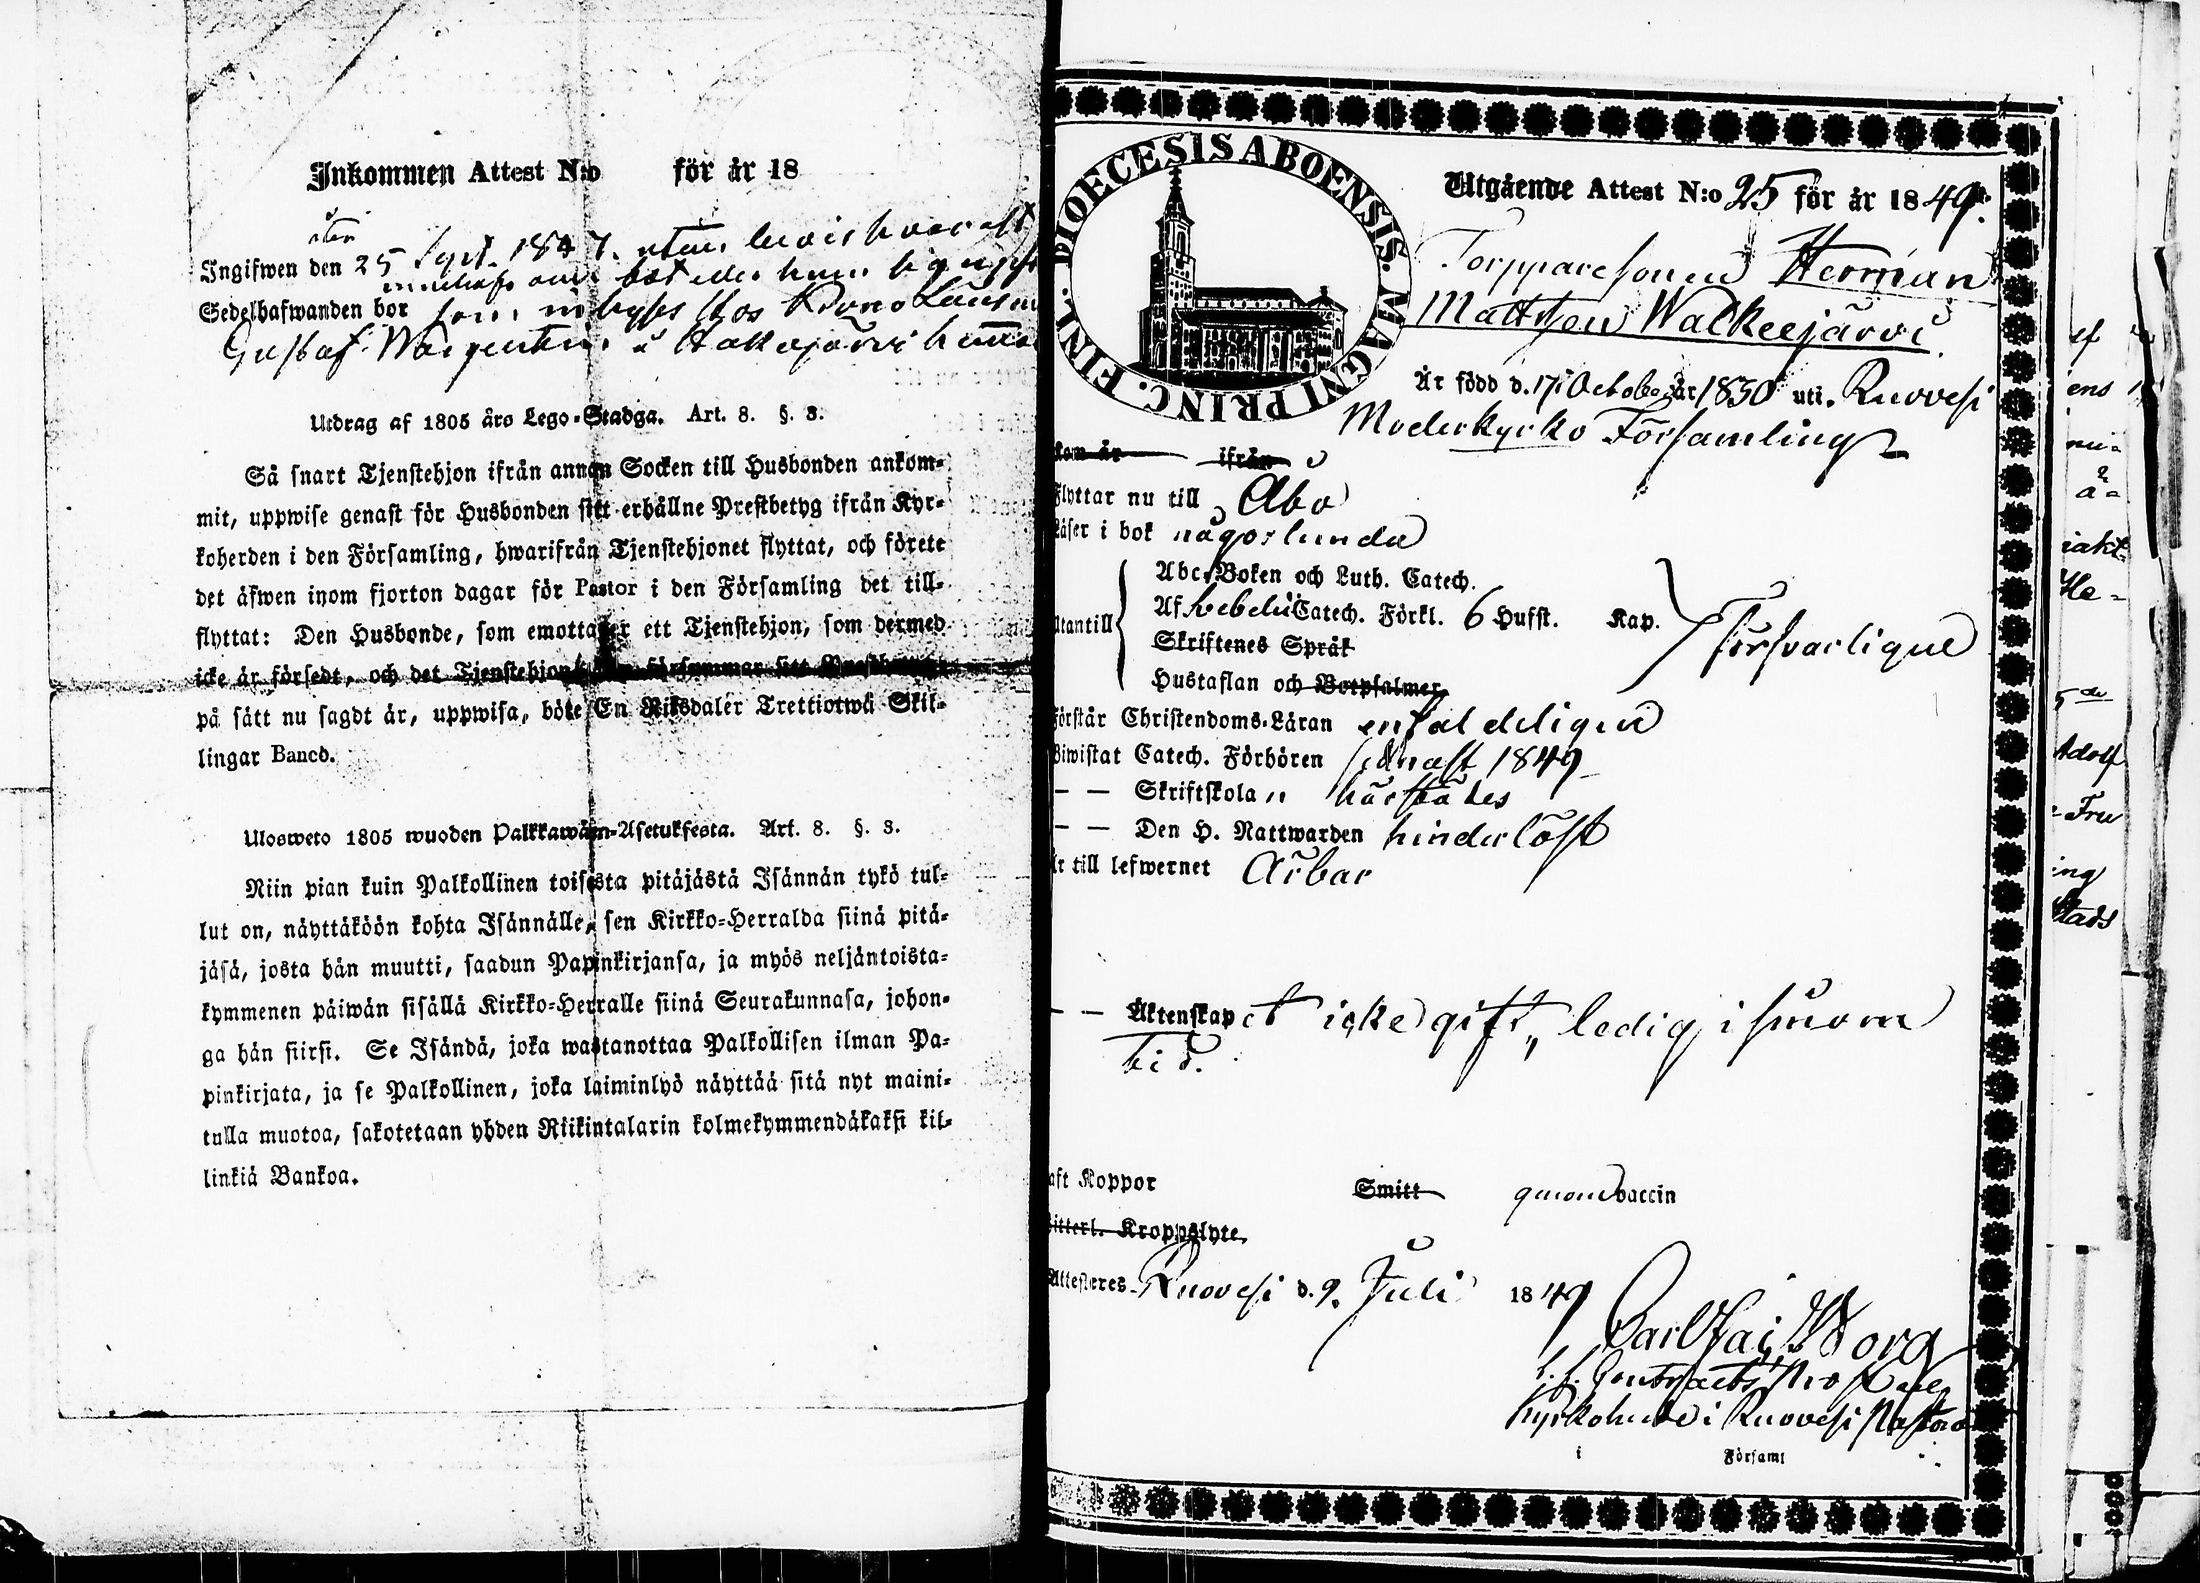 Inkommen Attest N:o för år 18
Ingifwen den 25 Sept. 1847. utan
Sedelhafwanden bor som hos Krono Länsm
Gustaf i
Utdrag af 1805 års Lego-Stadga. Art. 8. §. 3.
Så snart Tjenstehjon ifrån annan Socken till Husbonden ankom-
mit, uppwise genast för Husbonden sitt erhållne Prestbetyg ifrån Kyr-
koherden i den Församling, hwarifrån Tjenstehjonet flyttat, och förete
det äfwen inom fjorton dagar för Pastor i den Församling det till-
flyttat: Den Husbonde, som emottager ett Tjenstehjon, som dermed
icke är försedt, och det Tjenstehjon, som försummar sitt Prestbetyg,
på sätt nu sagdt är, uppwisa, böte En Riksdaler Trettiotwå Skil-
lingar Banco.
Ulosweto 1805 wuoden Palkkawäen-Asetuksesta. Art. 8. §. 3.
Niin pian kuin Palkollinen toisesta pitäjästä Isännän tykö tul-
lut on, näyttäköön kohta Isännälle, sen Kirkko-Herralda siinä pitä-
jäsä, josta hän muutti, saadun Papinkirjansa, ja myös neljäntoista-
kymmenen päiwän sisällä Kirkko-Herralle siinä Seurakunnasa, johon-
ga hän siirsi. Se Isändä, joka wastanottaa Palkollisen ilman Pa-
pinkirjata, ja se Palkollinen, joka laiminlyö näyttää sitä nyt maini-
tulla muotoa, sakotetaan yhden Riikintalarin kolmekymmendäkaksi kil-
linkiä Bankoa.
DIOECESIS ABOENSIS. MAGNI PRINC. FINL.
Utgående Attest N:o 25 för år 1849.
Torpparesonen Herman
Mattsson Walkeejärvi
Är född d. 17 October år 1830 uti Ruovesi
Moderkyrko Församling
kom år ifrån
Flyttar nu till Åbo
Läser i bok någorlunda
Abc-Boken och Luth. Catech.
Utantill Af Svebelii Catech. Förkl. 6 Hufst. Kap. Försvarligen
Skriftenes Språk
Hustaflan och Botpsalmer
Förstår Christendoms-Läran enfaldeligen
Biwistat Catech. Förhören sednast 1849
— — Skriftskola „ härstädes
— — Den H. Nattwarden hinderlöst
Är till lefwernet Ärbar
— — Äktenskapet icke gift, ledig i sinom
tid.
haft Koppor Smitt genom vaccin
Witterl. Kroppslyte.
Attesteres Ruovesi d. 9. Juli 1849
Carl
t. f. Contracts Prost
Kyrkoherde i Ruovesi Pastorat
i Församl
Adolf
Fru
ing
Stads